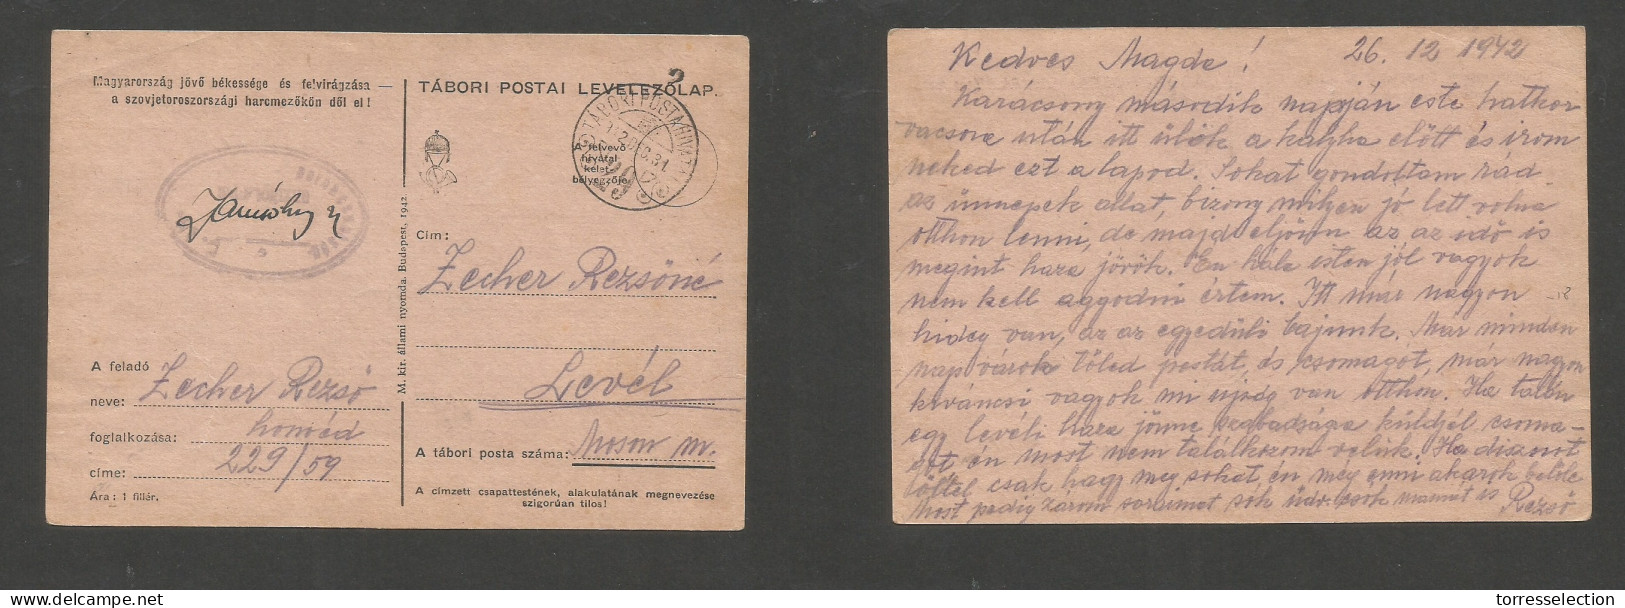 Magyarország jövő békessége és felvirágzása —
a szovjetoroszországi harcmezőkön dől el!
TÁBORI POSTAI LEVELEZŐLAP.
2
TÁBORI POSTAHIVATAL
A felvevő
hivatal
kelet-
bélyegzője
M. kir. állami nyomda. Budapest, 1942
Cím:
Zecher Rezsőné
Levél
A tábori posta száma: Moson m.
A címzett csapattestének, alakulatának megnevezése
szigorúan tilos!
A feladó
neve: Zecher Rezső
foglalkozása: honvéd
címe: 229/59
Ára: 1 fillér.
Kedves Magda! 26. 12 1942
Karácsony második napján este hatkor
vacsora után itt ülök a kalyha előtt és irom
neked ezt a lapod. Sokat gondoltam rád
az ünnepek alat, bizony milyen jó lett volna
otthon lenni, de majd eljönn az az idő is
megint haza jövök. Én hála isten jól vagyok
nem kell aggodni értem. Itt már nagyon
hideg van, az az egyedüli bajunk. Mar minden
nap várok tőled postát, és csomagot, már nagyon
kiváncsi vagyok mi ujság van otthon. Ha talán
egy levéli haza jönne szabadságra küldjél csoma-
got én most nem találkozom veluk. Ha disznot
öltel csak hagy meg sokat, én meg enni akarok belöle
Most pedig zárom soraimat sok csok Rezső
torresselection